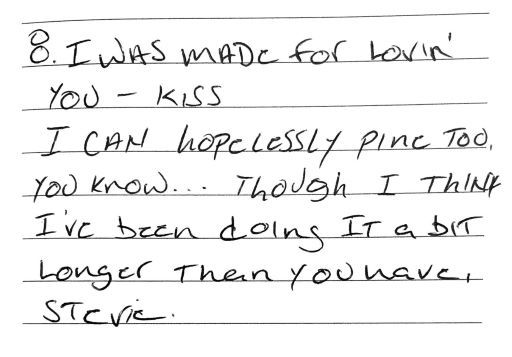 8. I WAS MADE for Lovin'
YOU – KISS
I CAN hopelessly pine TOO,
YOU know... Though I THINK
I've been doing IT a bit
Longer Than YOU have,
STevie.